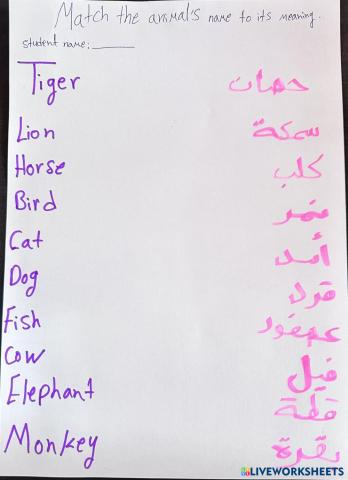 Match the animal's name to its meaning.
student name:______
Tiger حصان
Lion سمكة
Horse كلب
Bird نمر
Cat أسد
Dog قرد
Fish عصفور
Cow فيل
Elephant قطة
Monkey بقرة
LIVEWORKSHEETS